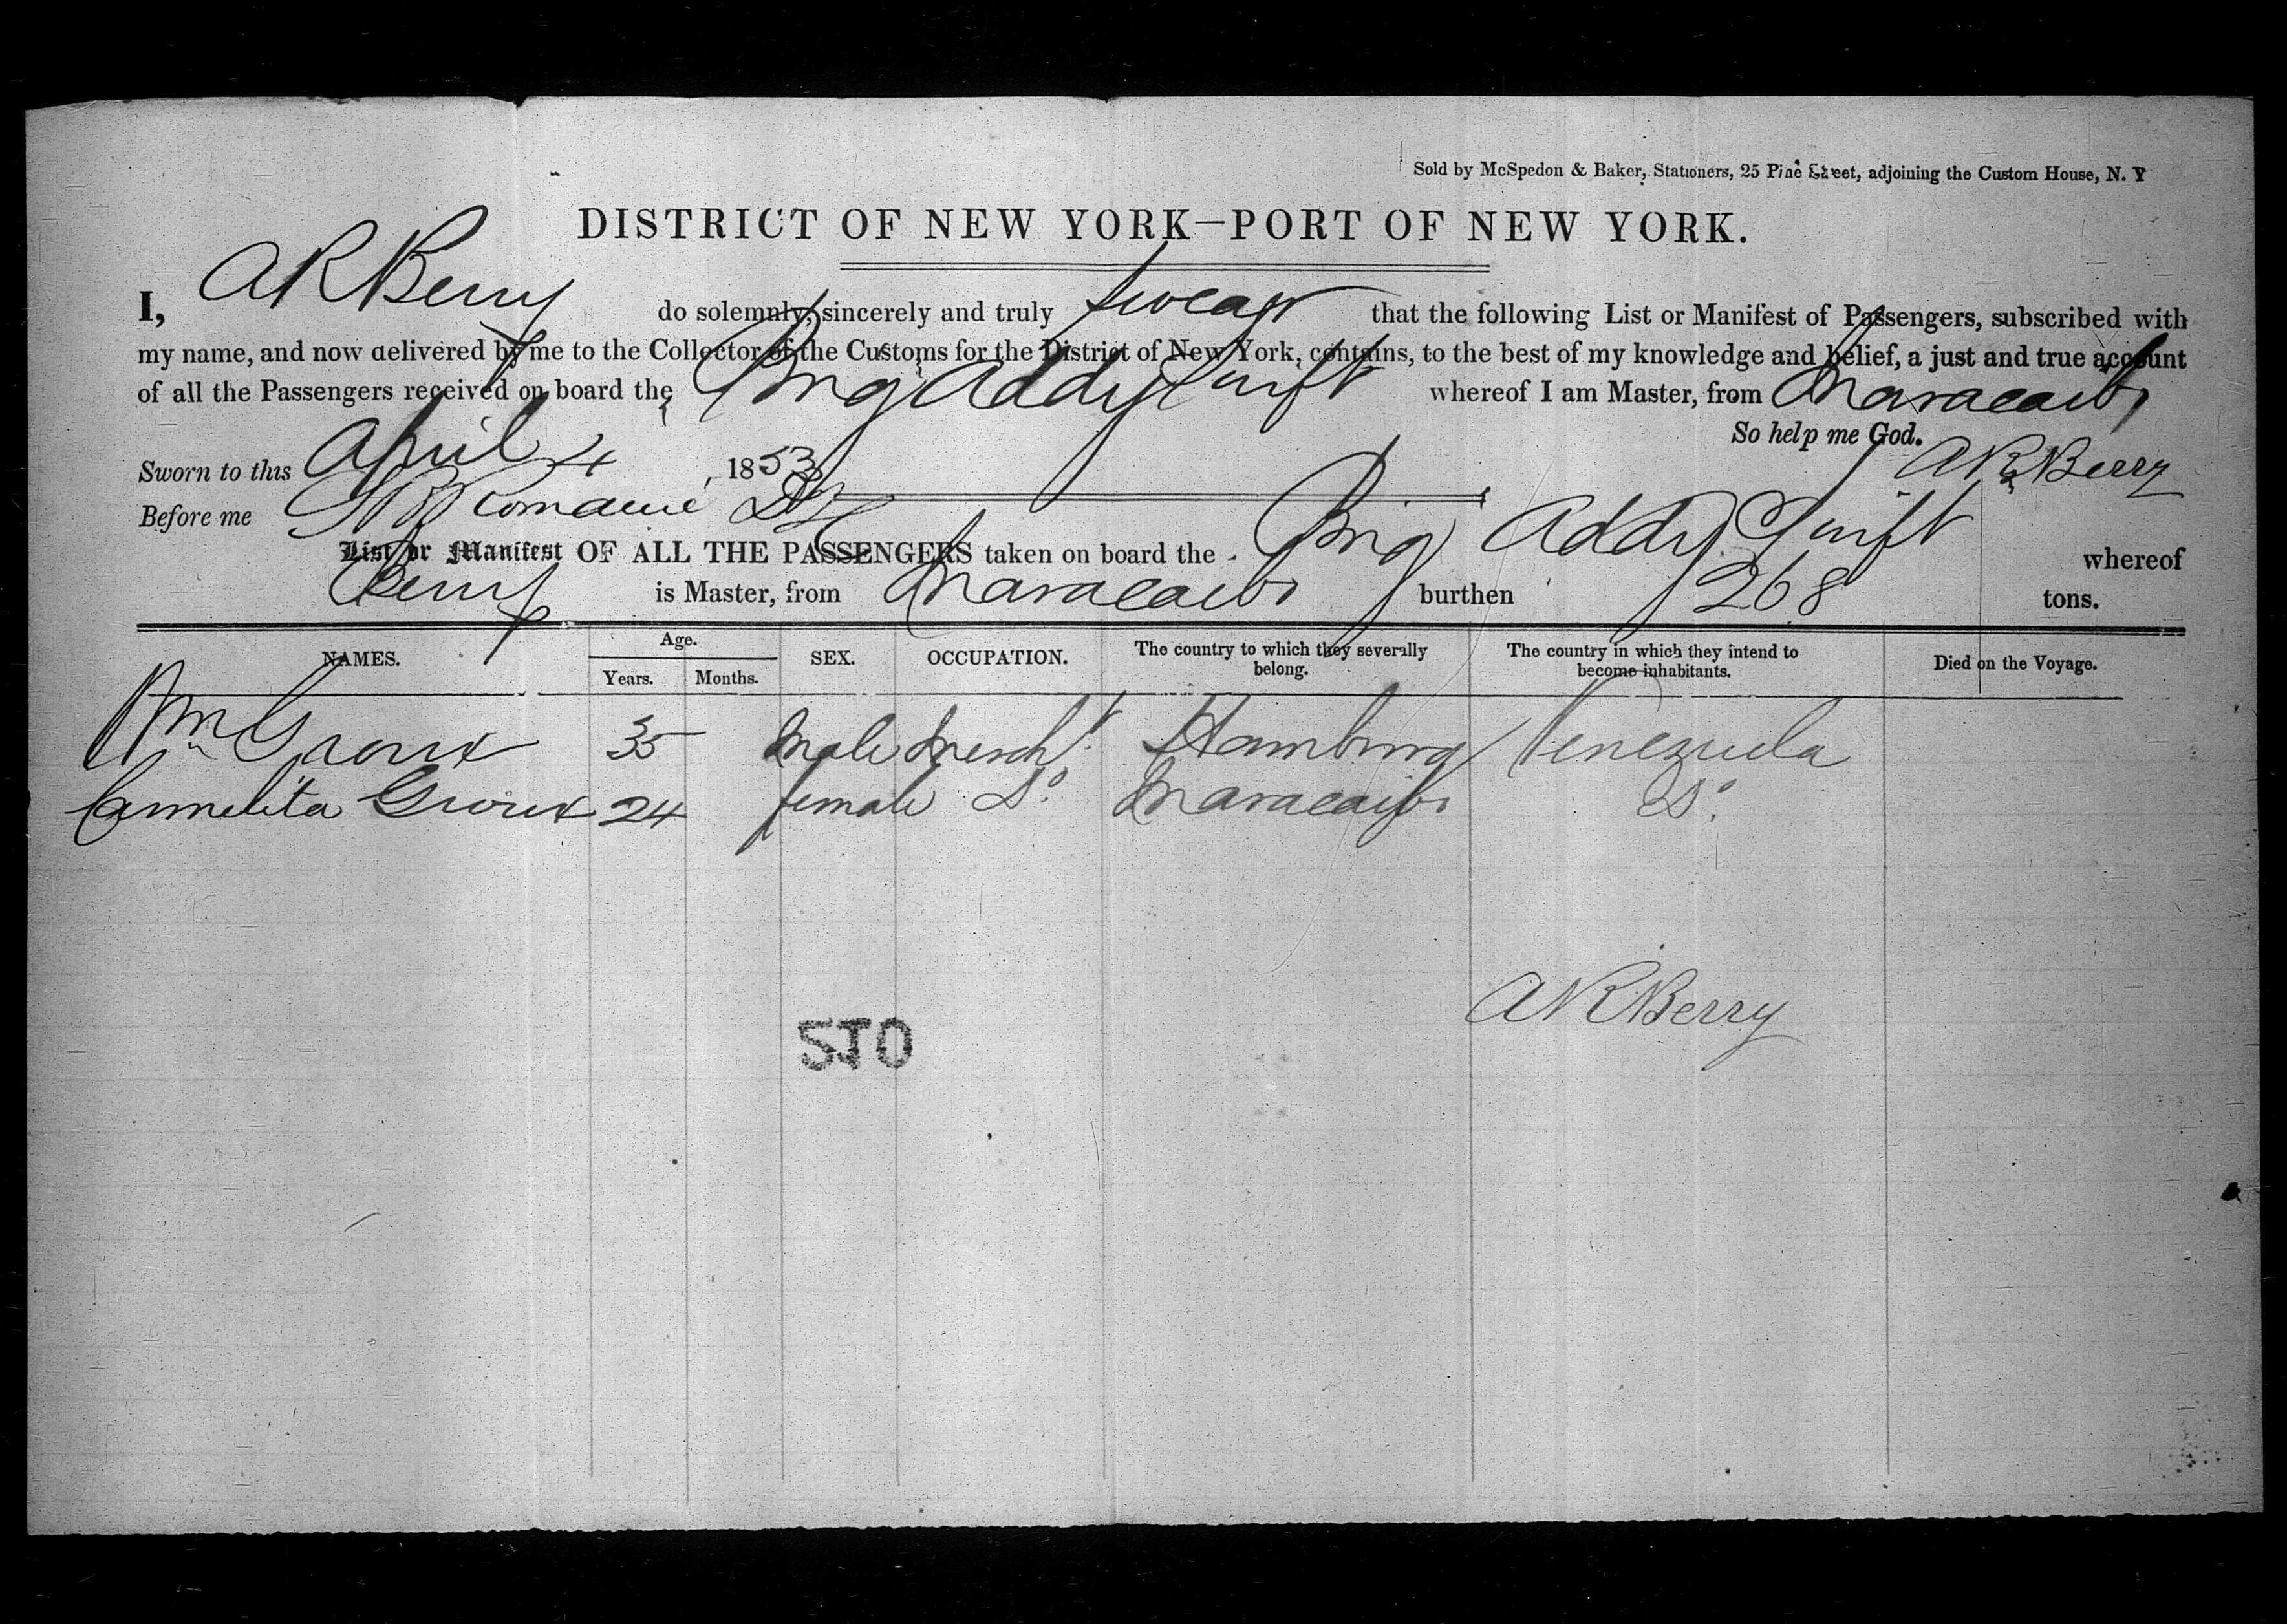 Sold by McSpedon & Baker, Stationers, 25 Pine Street, adjoining the Custom House, N. Y
DISTRICT OF NEW YORK—PORT OF NEW YORK.
I, A R Berry do solemnly, sincerely and truly swear that the following List or Manifest of Passengers, subscribed with
my name, and now delivered by me to the Collector of the Customs for the District of New York, contains, to the best of my knowledge and belief, a just and true account
of all the Passengers received on board the Brig Addy Swift whereof I am Master, from Maracaibo
So help me God.
Sworn to this April 4 1853 A R Berry
Before me Romaine
List or Manifest OF ALL THE PASSENGERS taken on board the Brig Addy Swift whereof
Berry is Master, from Maracaibo burthen 268 tons.
NAMES. Age. Years. Months. SEX. OCCUPATION. The country to which they severally belong. The country in which they intend to become inhabitants. Died on the Voyage.
Wm 35 Male Mercht. Hamburg Venezuela
Carmelita 24 female Do. Maracaibo Do.
A R Berry
510